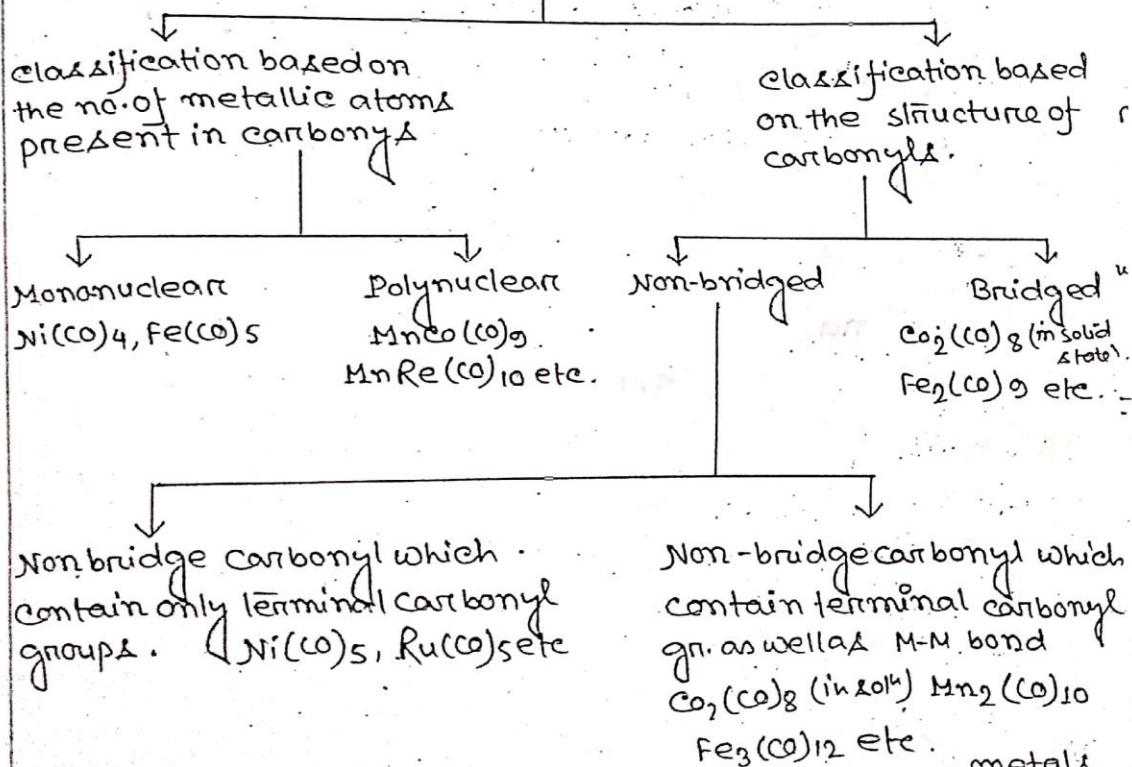 classification based on
the no. of metallic atoms
present in carbonys
classification based
on the structure of
carbonyls.
Mononuclear
Ni(CO)4, Fe(CO)5
Polynuclear
MnCo(CO)9.
MnRe(CO)10 etc.
Non-bridged
Bridged
Co2(CO)8 (in solid
state).
Fe2(CO)9 etc.
Nonbridge carbonyl which
contain only terminal carbonyl
groups. Ni(CO)5, Ru(CO)5 etc
Non-bridge carbonyl which
contain terminal carbonyl
gr. as well as M-M bond
Co2(CO)8 (in soln) Mn2(CO)10
Fe3(CO)12 etc.
metals